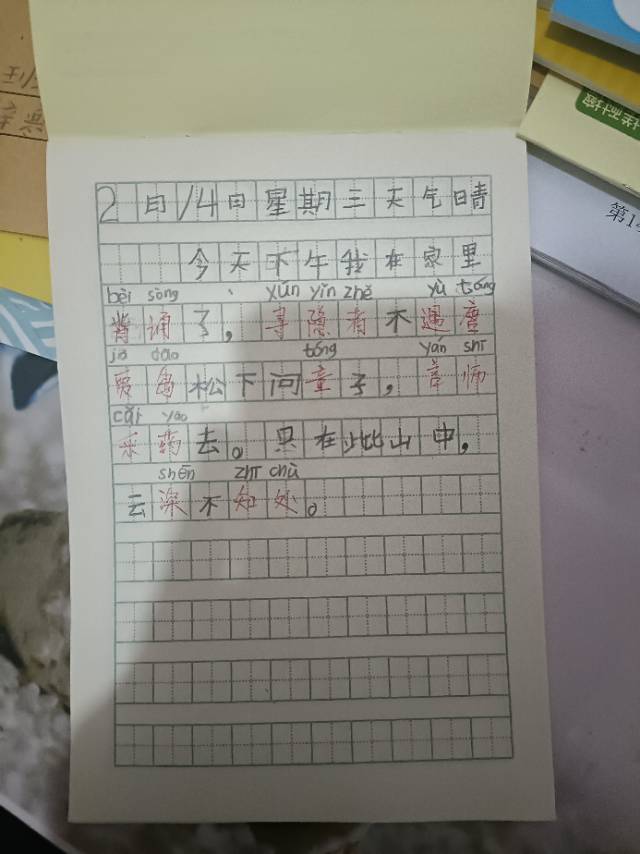 2月14日星期三天气晴
今天下午我在家里
bèi sòng xún yǐn zhě yù tóng
背诵了,寻隐者不遇童
jiǎ dǎo tóng yán shī
贾岛松下问童子,言师
cǎi yào
采药去。只在此山中,
shēn zhī chù
云深不知处。
第1